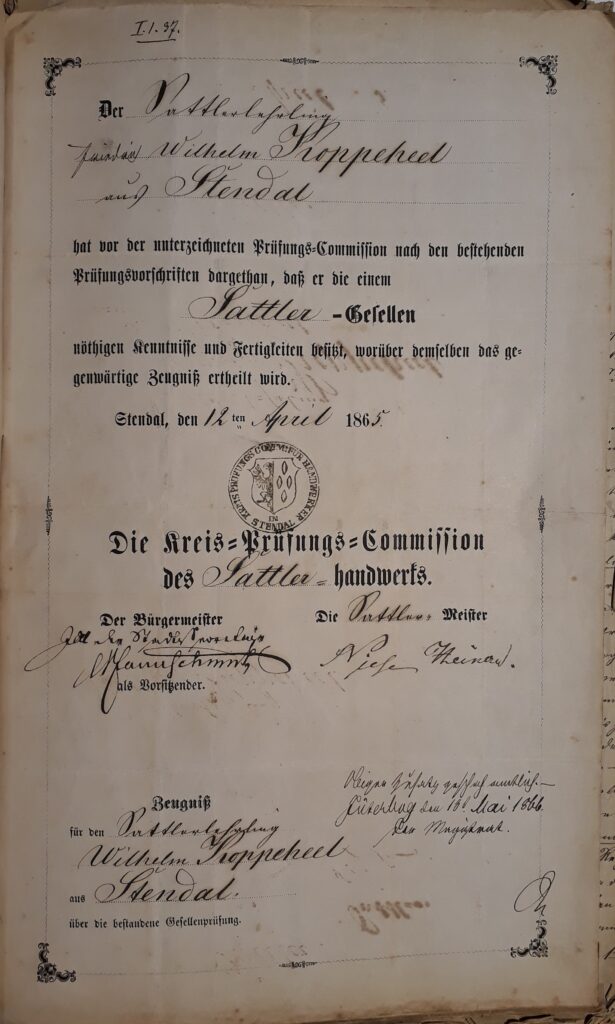 I. 1. 37.
Der Sattlerlehrling
Wilhelm Koppeheel
aus Stendal
hat vor der unterzeichneten Prüfungs-Commission nach den bestehenden
Prüfungsvorschriften dargethan, daß er die einem
Sattler-Gesellen
nöthigen Kenntnisse und Fertigkeiten besitzt, worüber demselben das ge-
genwärtige Zeugniß ertheilt wird.
Stendal, den 12ten April 1865.
KREIS PRÜFUNGS COMM: FÜR HANDWERKER IN STENDAL
Die Kreis-Prüfungs-Commission
des Sattler-handwerks.
Der Bürgermeister
Die Sattler-Meister
als Vorsitzender.
Zeugniß
für den Sattlerlehrling
Wilhelm Koppeheel
aus Stendal.
über die bestandene Gesellenprüfung.
Jüterbog den 19. Mai 1866.
Der Magistrat.